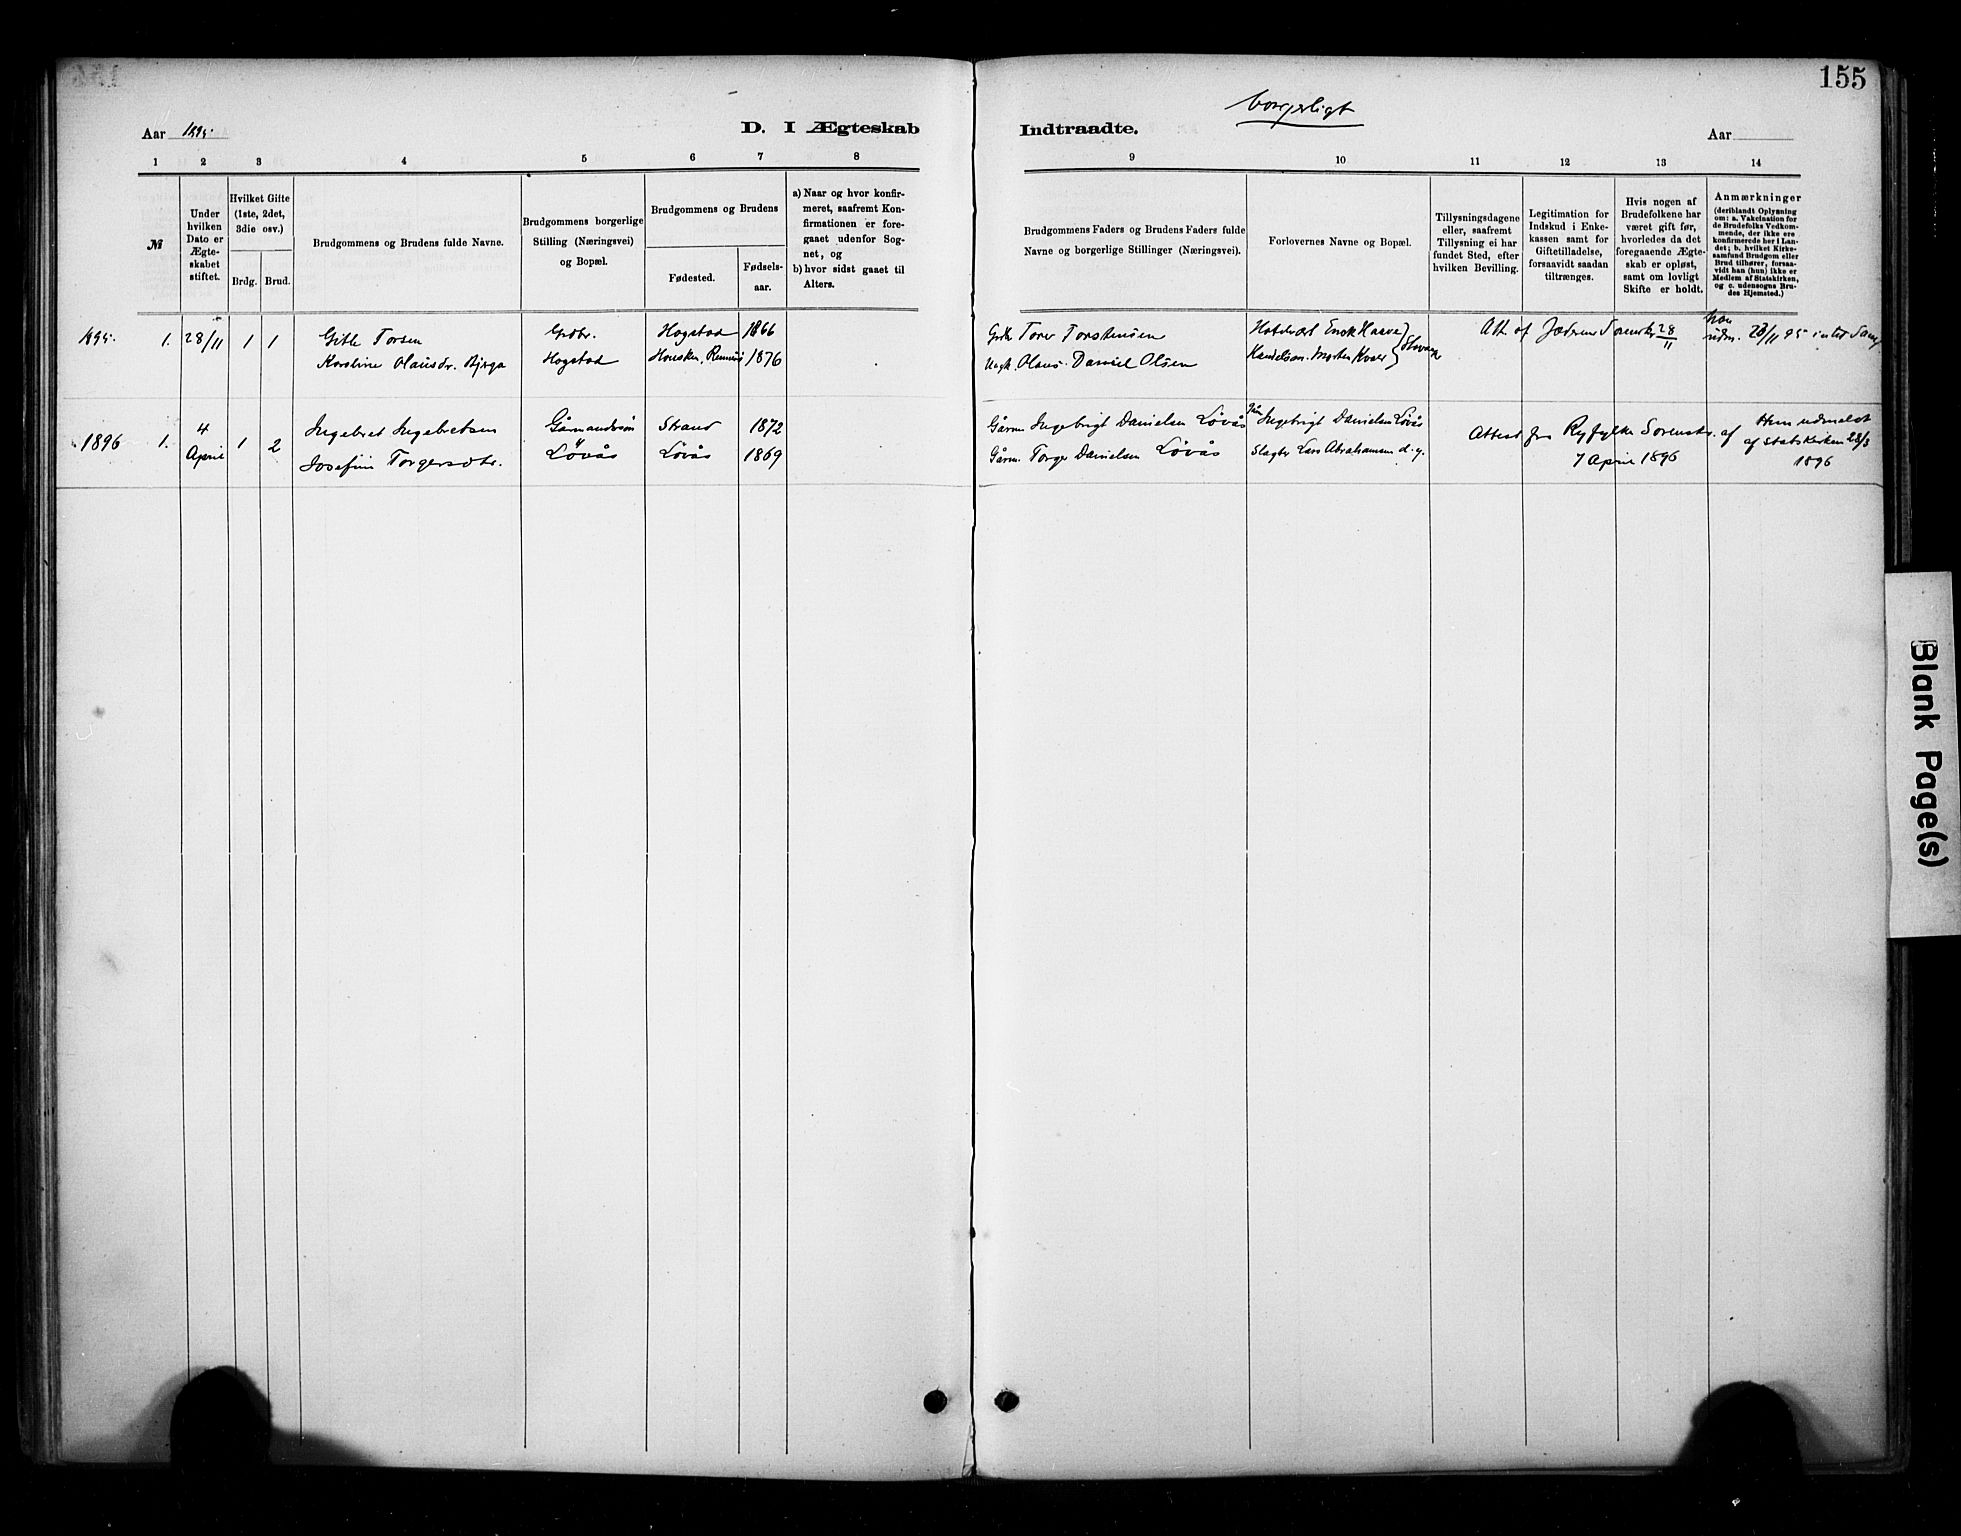 155
borgerligt
Aar 1895.
D. I Ægteskab
Indtraadte.
Aar
1 2 3 4 5 6 7 8
9 10 11 12 13 14
№
Under
hvilken
Dato er
Ægte-
skabet
stiftet.
Hvilket Gifte
(1ste, 2det,
3die osv.)
Brdg. Brud.
Brudgommens og Brudens fulde Navne.
Brudgommens borgerlige
Stilling (Næringsvei)
og Bopæl.
Brudgommens og Brudens
Fødested.
Fødsels-
aar.
a) Naar og hvor konfir-
meret, saafremt Kon-
firmationen er fore-
gaaet udenfor Sog-
net, og
b) hvor sidst gaaet til
Alters.
Brudgommens Faders og Brudens Faders fulde
Navne og borgerlige Stillinger (Næringsvei).
Forlovernes Navne og Bopæl.
Tillysningsdagene
eller, saafremt
Tillysning ei har
fundet Sted, efter
hvilken Bevilling.
Legitimation for
Indskud i Enke-
kassen samt for
Giftetilladelse,
forsaavidt saadan
tiltrænges.
Hvis nogen af
Brudefolkene har
været gift før,
hvorledes da det
foregaaende Ægte-
skab er opløst,
samt om lovligt
Skifte er holdt.
Anmærkninger
(deriblandt Oplysning
om: a. Vakcination for
de Brudefolks Vedkom-
mende, der ikke ere
konfirmerede her i Lan-
det; b. hvilket Kirke-
samfund Brudgom eller
Brud tilhører, forsaa-
vidt han (hun) ikke er
Medlem af Statskirken,
og c. udensogns Bru-
des Hjemsted.)
1895. 1. 28/11 1 1 Gitle Torsen Grdbr. Hogstad 1866
Karoline Olausdr. Bjerga Hogstad 1876
Torer Torstensen
Olaus Daniel Olsen
Att. af Jæderens Sorenskr. 28/11
han
udm. 28/11 95
1896 1. 4 1 2 Ingebret Ingebretsen Gårmandssøn Strand 1872
April Josefine Torgersdtr. Løvås Løvås 1869
Gårm. Ingebrigt Danielsen Løvås Ingebrigt Danielsen Løvås
Gårm. Torger Danielsen Løvås Slagter Lars Abrahamsen d. y.
Attest fra Ryfylke Sorenskr. af
7 April 1896
Hun udmeldt
af Statskirken 28/3
1896
Blank Page(s)